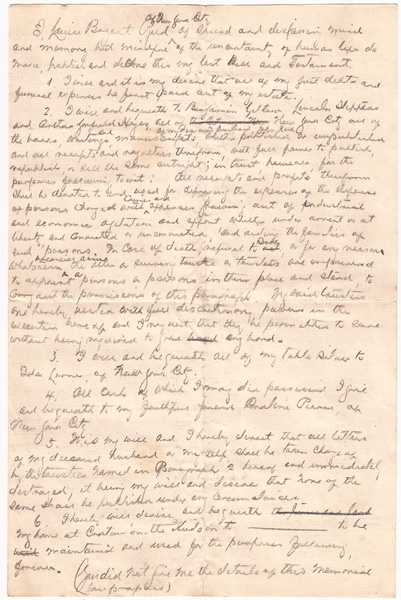 of New York City
I, Louise Bryant Reed of sound and disposing mind
and memory but mindful of the uncertainty of human life do
make, publish and declare this my last Will and Testament.
1. I direct and it is my desire that all of my just debts and
funeral expenses be first paid out of my estate.
2. I give and bequeath to Benjamin Gitlow, Lincoln Steffens
and Arthur Garfield Hays all of New York City, all of
the books, writings, manuscripts whether published or unpublished
and all receipts and royalties therefrom with full power to publish,
republish or sell the same outright; in trust however for the
purposes following to wit: All receipts and profits therefrom
shall be devoted to and used for defraying the expenses of the defense
of persons charged with offenses growing out of industrial
and economic agitation and effort whether under arrest or at
liberty, and convicted or unconvicted, and aiding the families of
such persons. In case of death, refusal to or for any reason
whatsoever the other or surviving trustee or trustees are empowered
to appoint a person or persons in their place and stead to
carry out the provisions of this paragraph. My said trustees
are hereby vested with full discretionary powers in the
execution hereof and I request that they be permitted to serve
without being required to give any bond.
3. I give and bequeath all of my table silver to
of New York City.
4. All cash of which I may die possessed I give
and bequeath to my faithful friend of
New York City
5. It is my will and I hereby direct that all letters
of my deceased husband or my self shall be taken charge of
by the trustees named in Paragraph 2 hereof and immediately
destroyed, it being my will and desire that none of the
same shall be published under any circumstances.
6. I hereby will devise and bequeath
my home at Croton-on-the-Hudson to to be
maintained and used for the purposes following,
forever.
(You did not give me the details of this Memorial